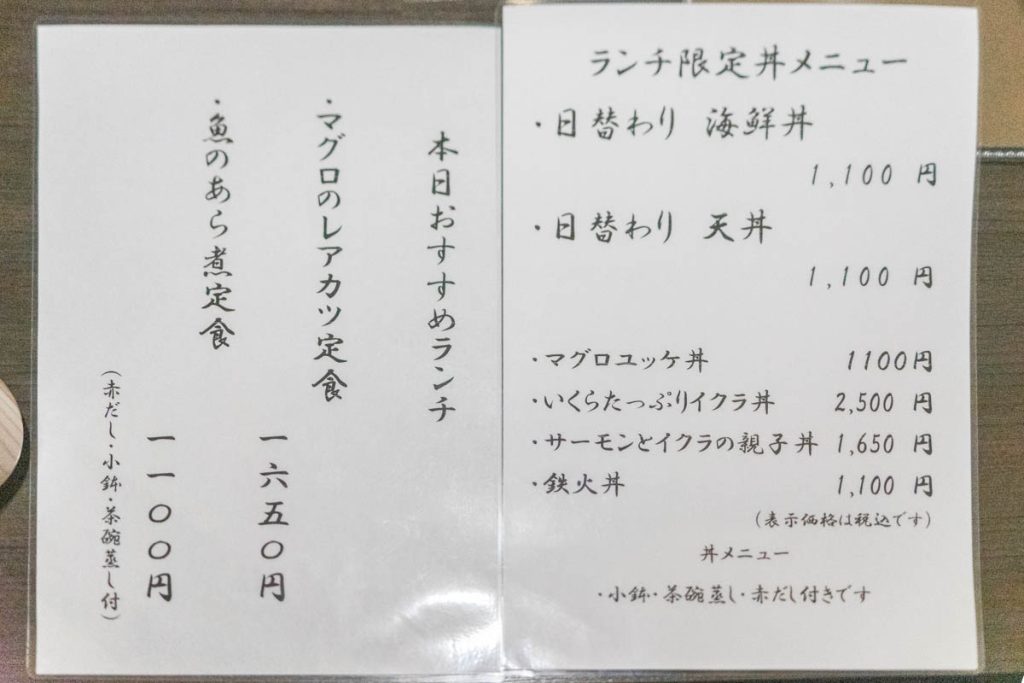 ランチ限定丼メニュー
・日替わり 海鮮丼
1,100 円
・日替わり 天丼
1,100 円
・マグロユッケ丼 1100円
・いくらたっぷりイクラ丼 2,500 円
・サーモンとイクラの親子丼 1,650 円
・鉄火丼 1,100 円
(表示価格は税込です)
丼メニュー
・小鉢・茶碗蒸し・赤だし付きです
本日おすすめランチ
・マグロのレアカツ定食
一六五〇円
・魚のあら煮定食
一一〇〇円
(赤だし・小鉢・茶碗蒸し付)